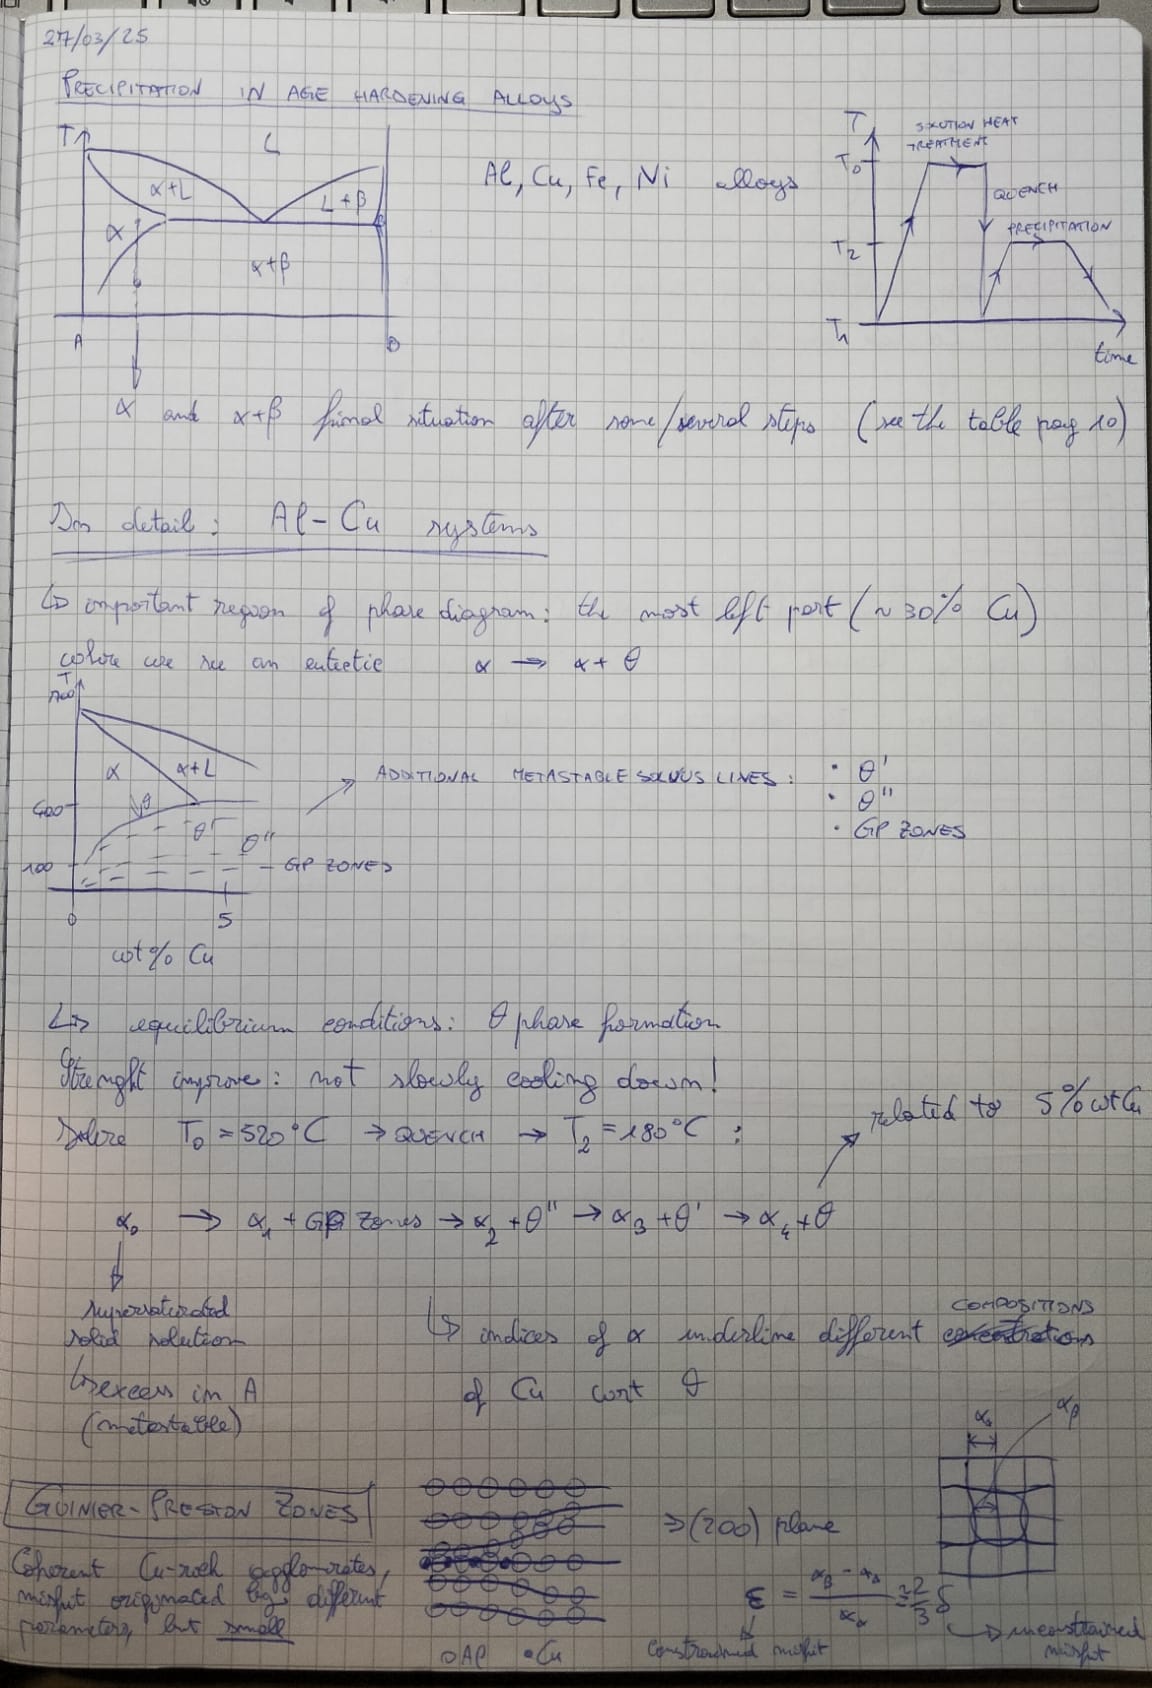 27/03/25
PRECIPITATION IN AGE HARDENING ALLOYS
T
L
α+L
L+β
α
α+β
A
B
Al, Cu, Fe, Ni alloys
T
SOLUTION HEAT
TREATMENT
T0
QUENCH
PRECIPITATION
T2
T1
time
α and α+β final situation after some/several steps (see the table pag 10)
In detail: Al-Cu systems
↳ important region of phase diagram: the most left part (~30% Cu)
where we see an eutectic α → α+θ
T
700
α
α+L
θ
600
θ'
θ''
100
GP ZONES
0
5
wt% Cu
→ ADDITIONAL METASTABLE SOLVUS LINES: • θ'
• θ''
• GP ZONES
↳ equilibrium conditions: θ phase formation
Strenght improve: not slowly cooling down!
T0 = 520°C → QUENCH → T2 = 180°C :
related to 5% wt Cu
α0 → α1 + GP Zones → α2 + θ'' → α3 + θ' → α4 + θ
supersaturated
solid solution
↳ excess in A
(metastable)
↳ indices of α underline different COMPOSITIONS
of Cu wrt θ
GUINIER-PRESTON ZONES
Coherent Cu-rich agglomrates,
misfit originated by different
parameters, but small
○ Al • Cu
⇒ (200) plane
αβ
ε = ≅ 2/3 δ
constrained misfit
→ unconstrained
misfit